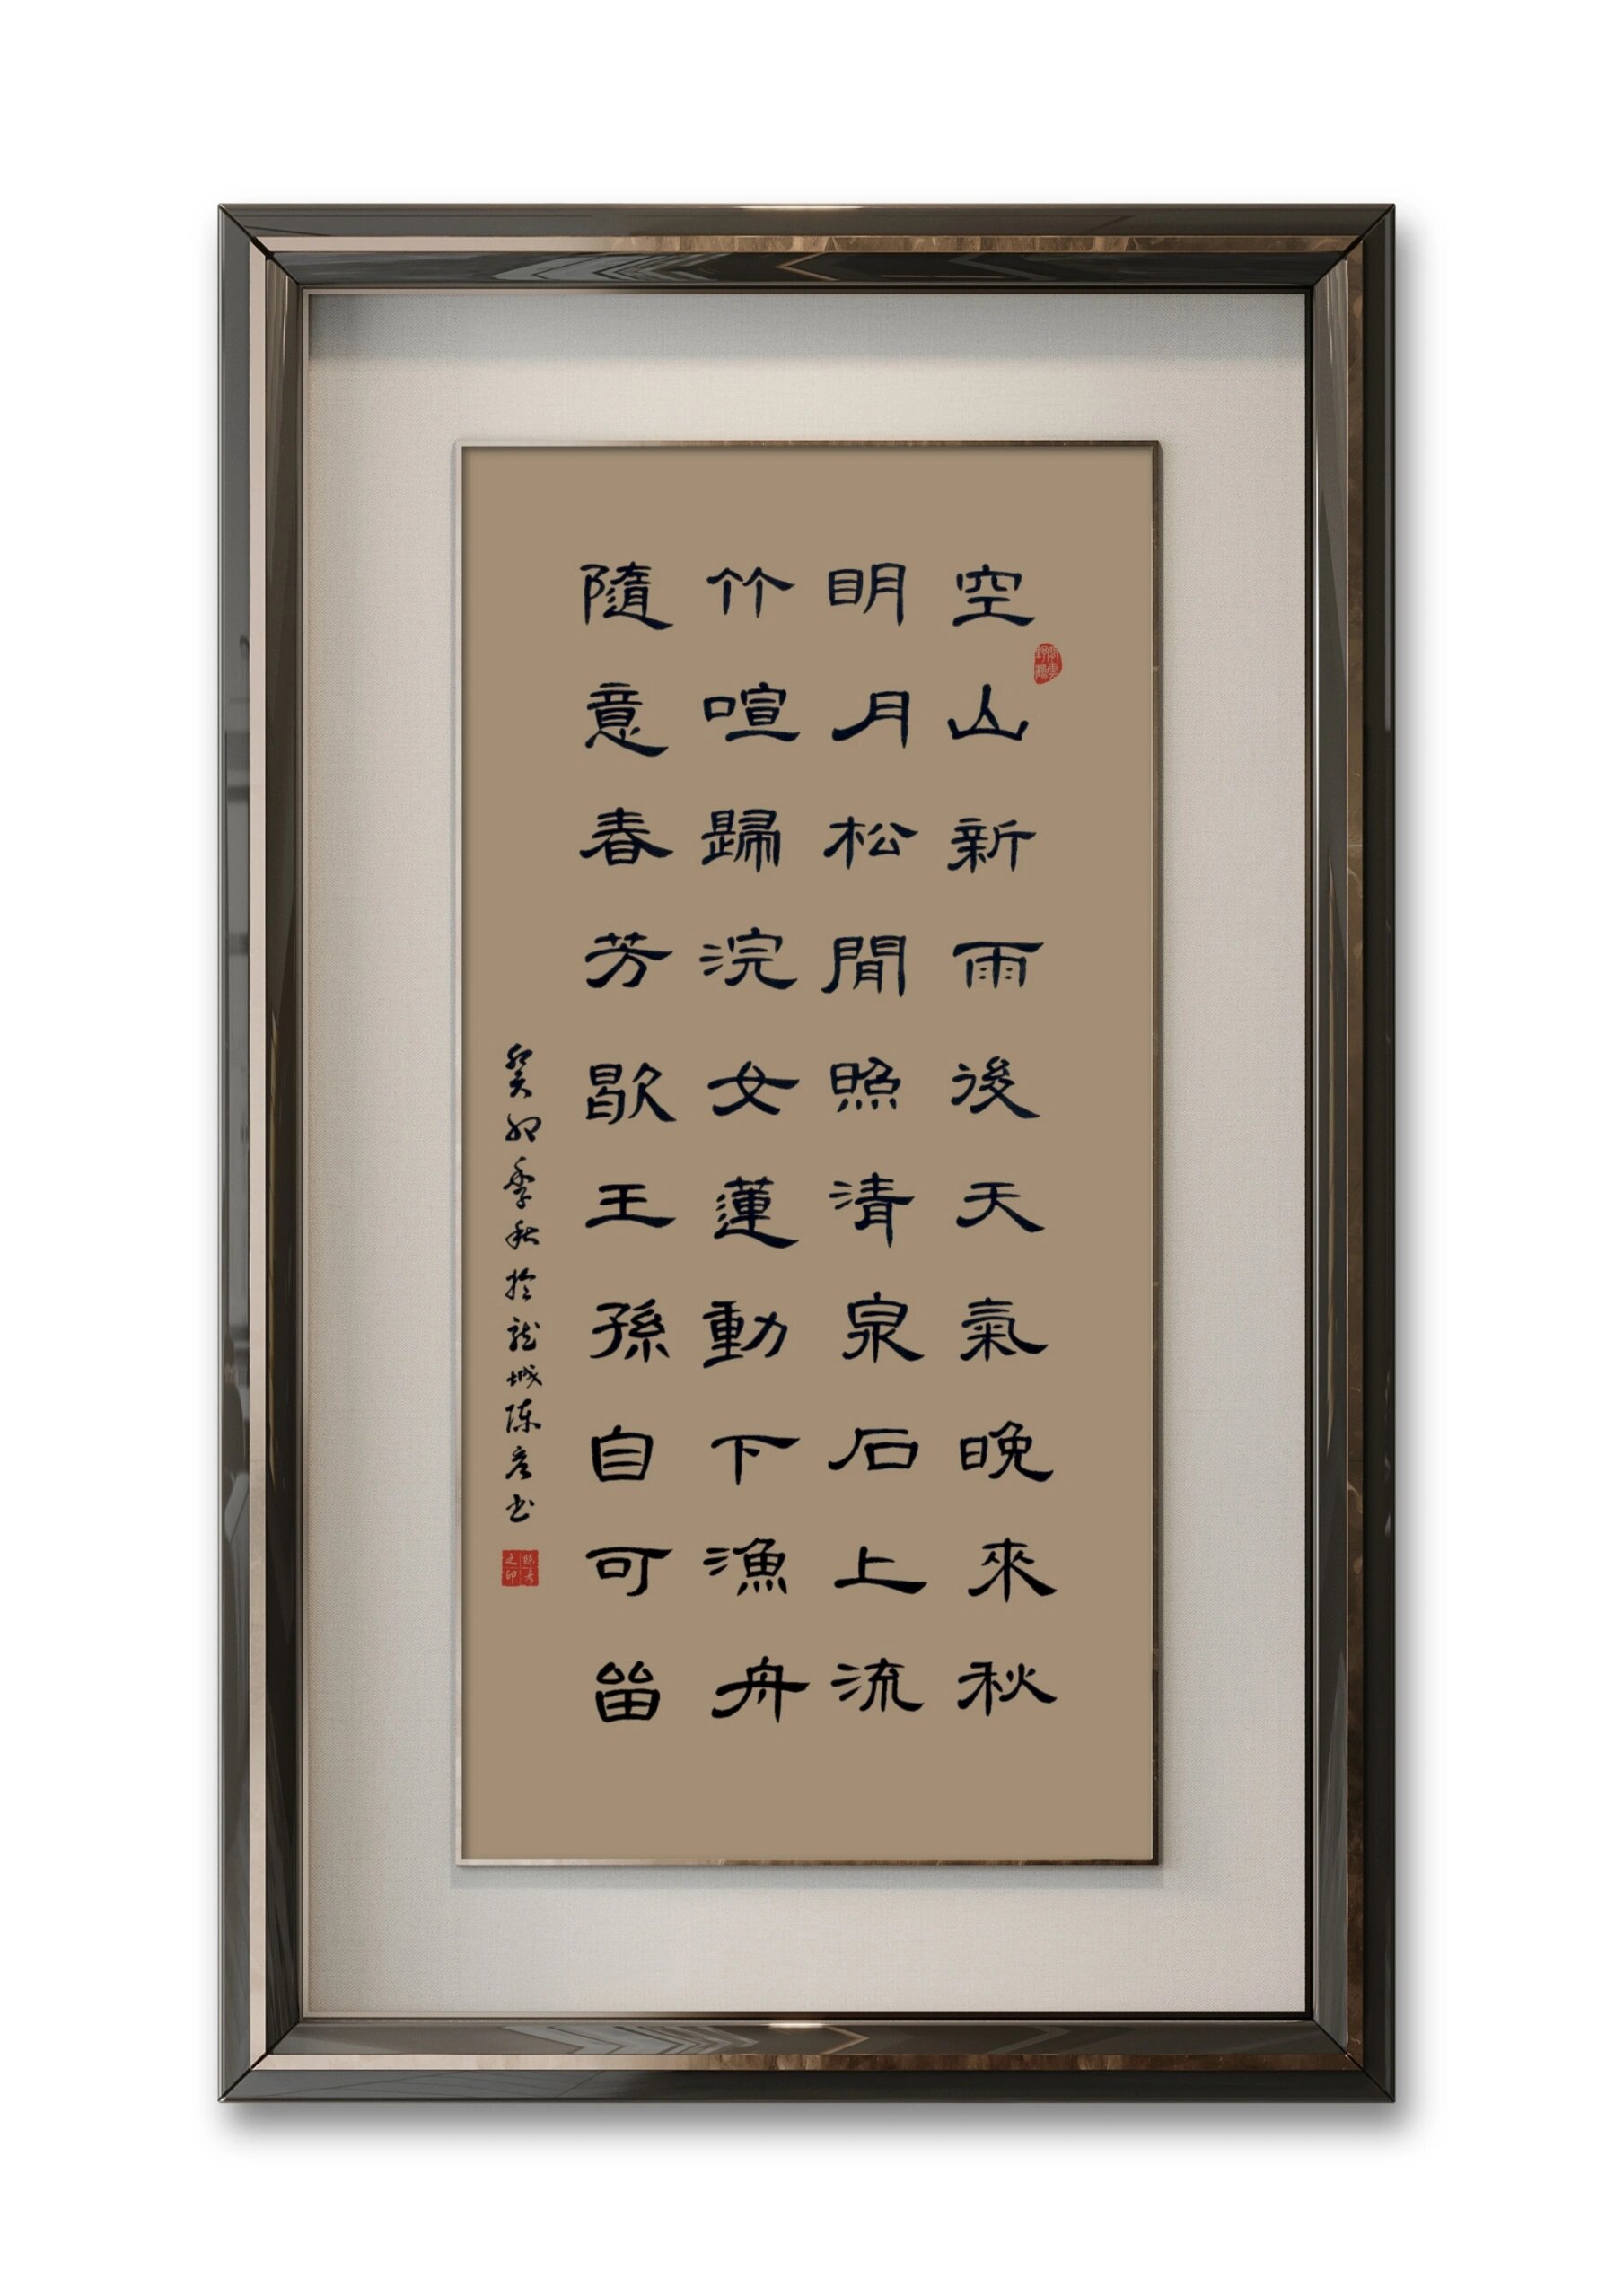 空山新雨後天氣晚來秋
明月松間照清泉石上流
竹喧歸浣女蓮動下漁舟
隨意春芳歇王孫自可留
癸卯季秋於龍城陳彥書